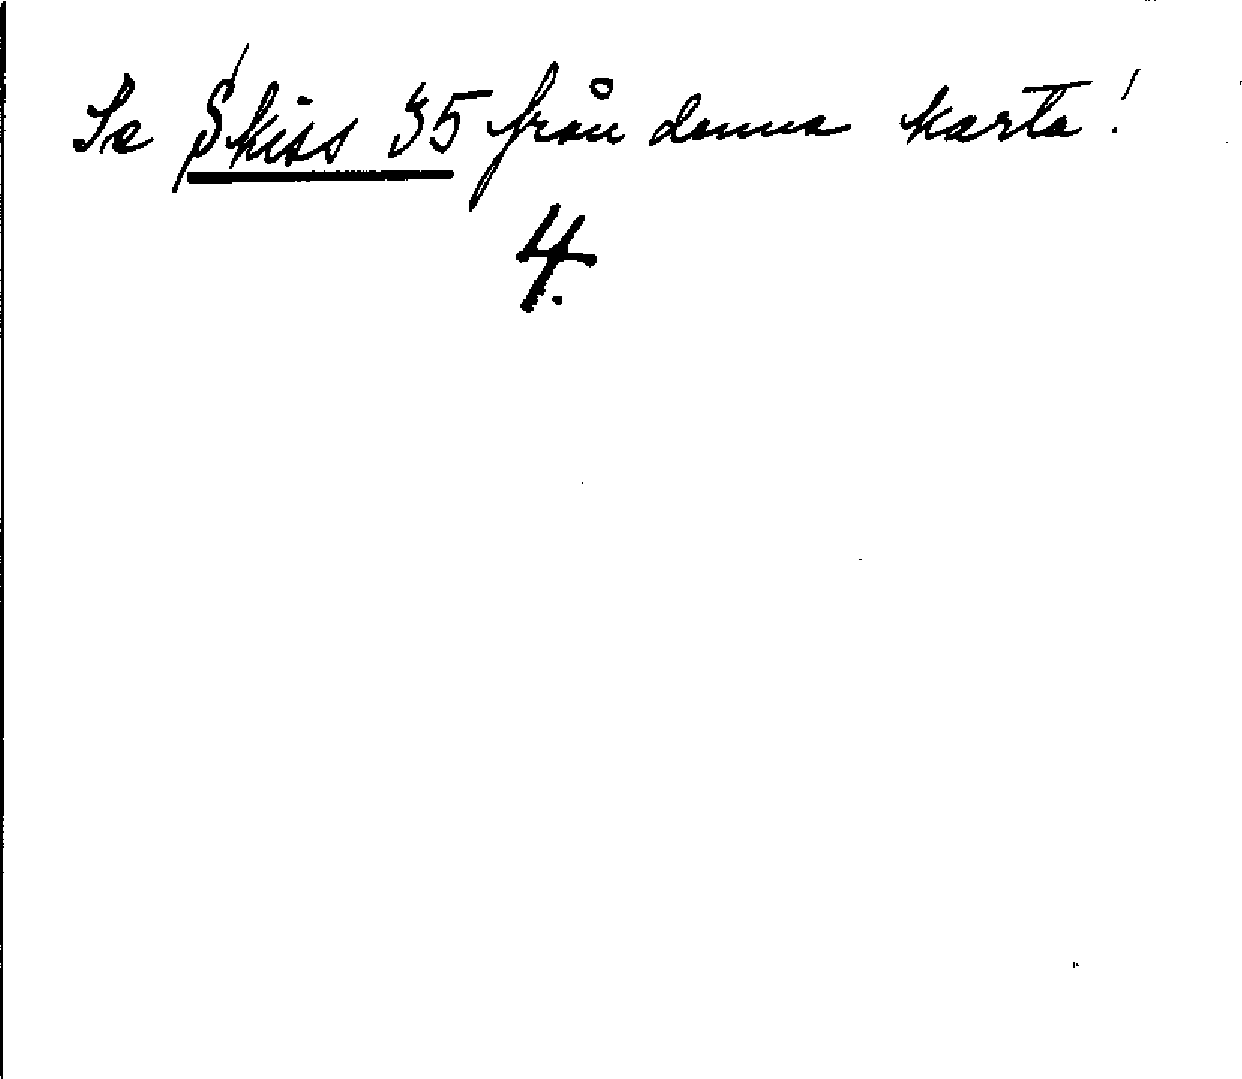 Se Skiss 35 från denna karta!
4.